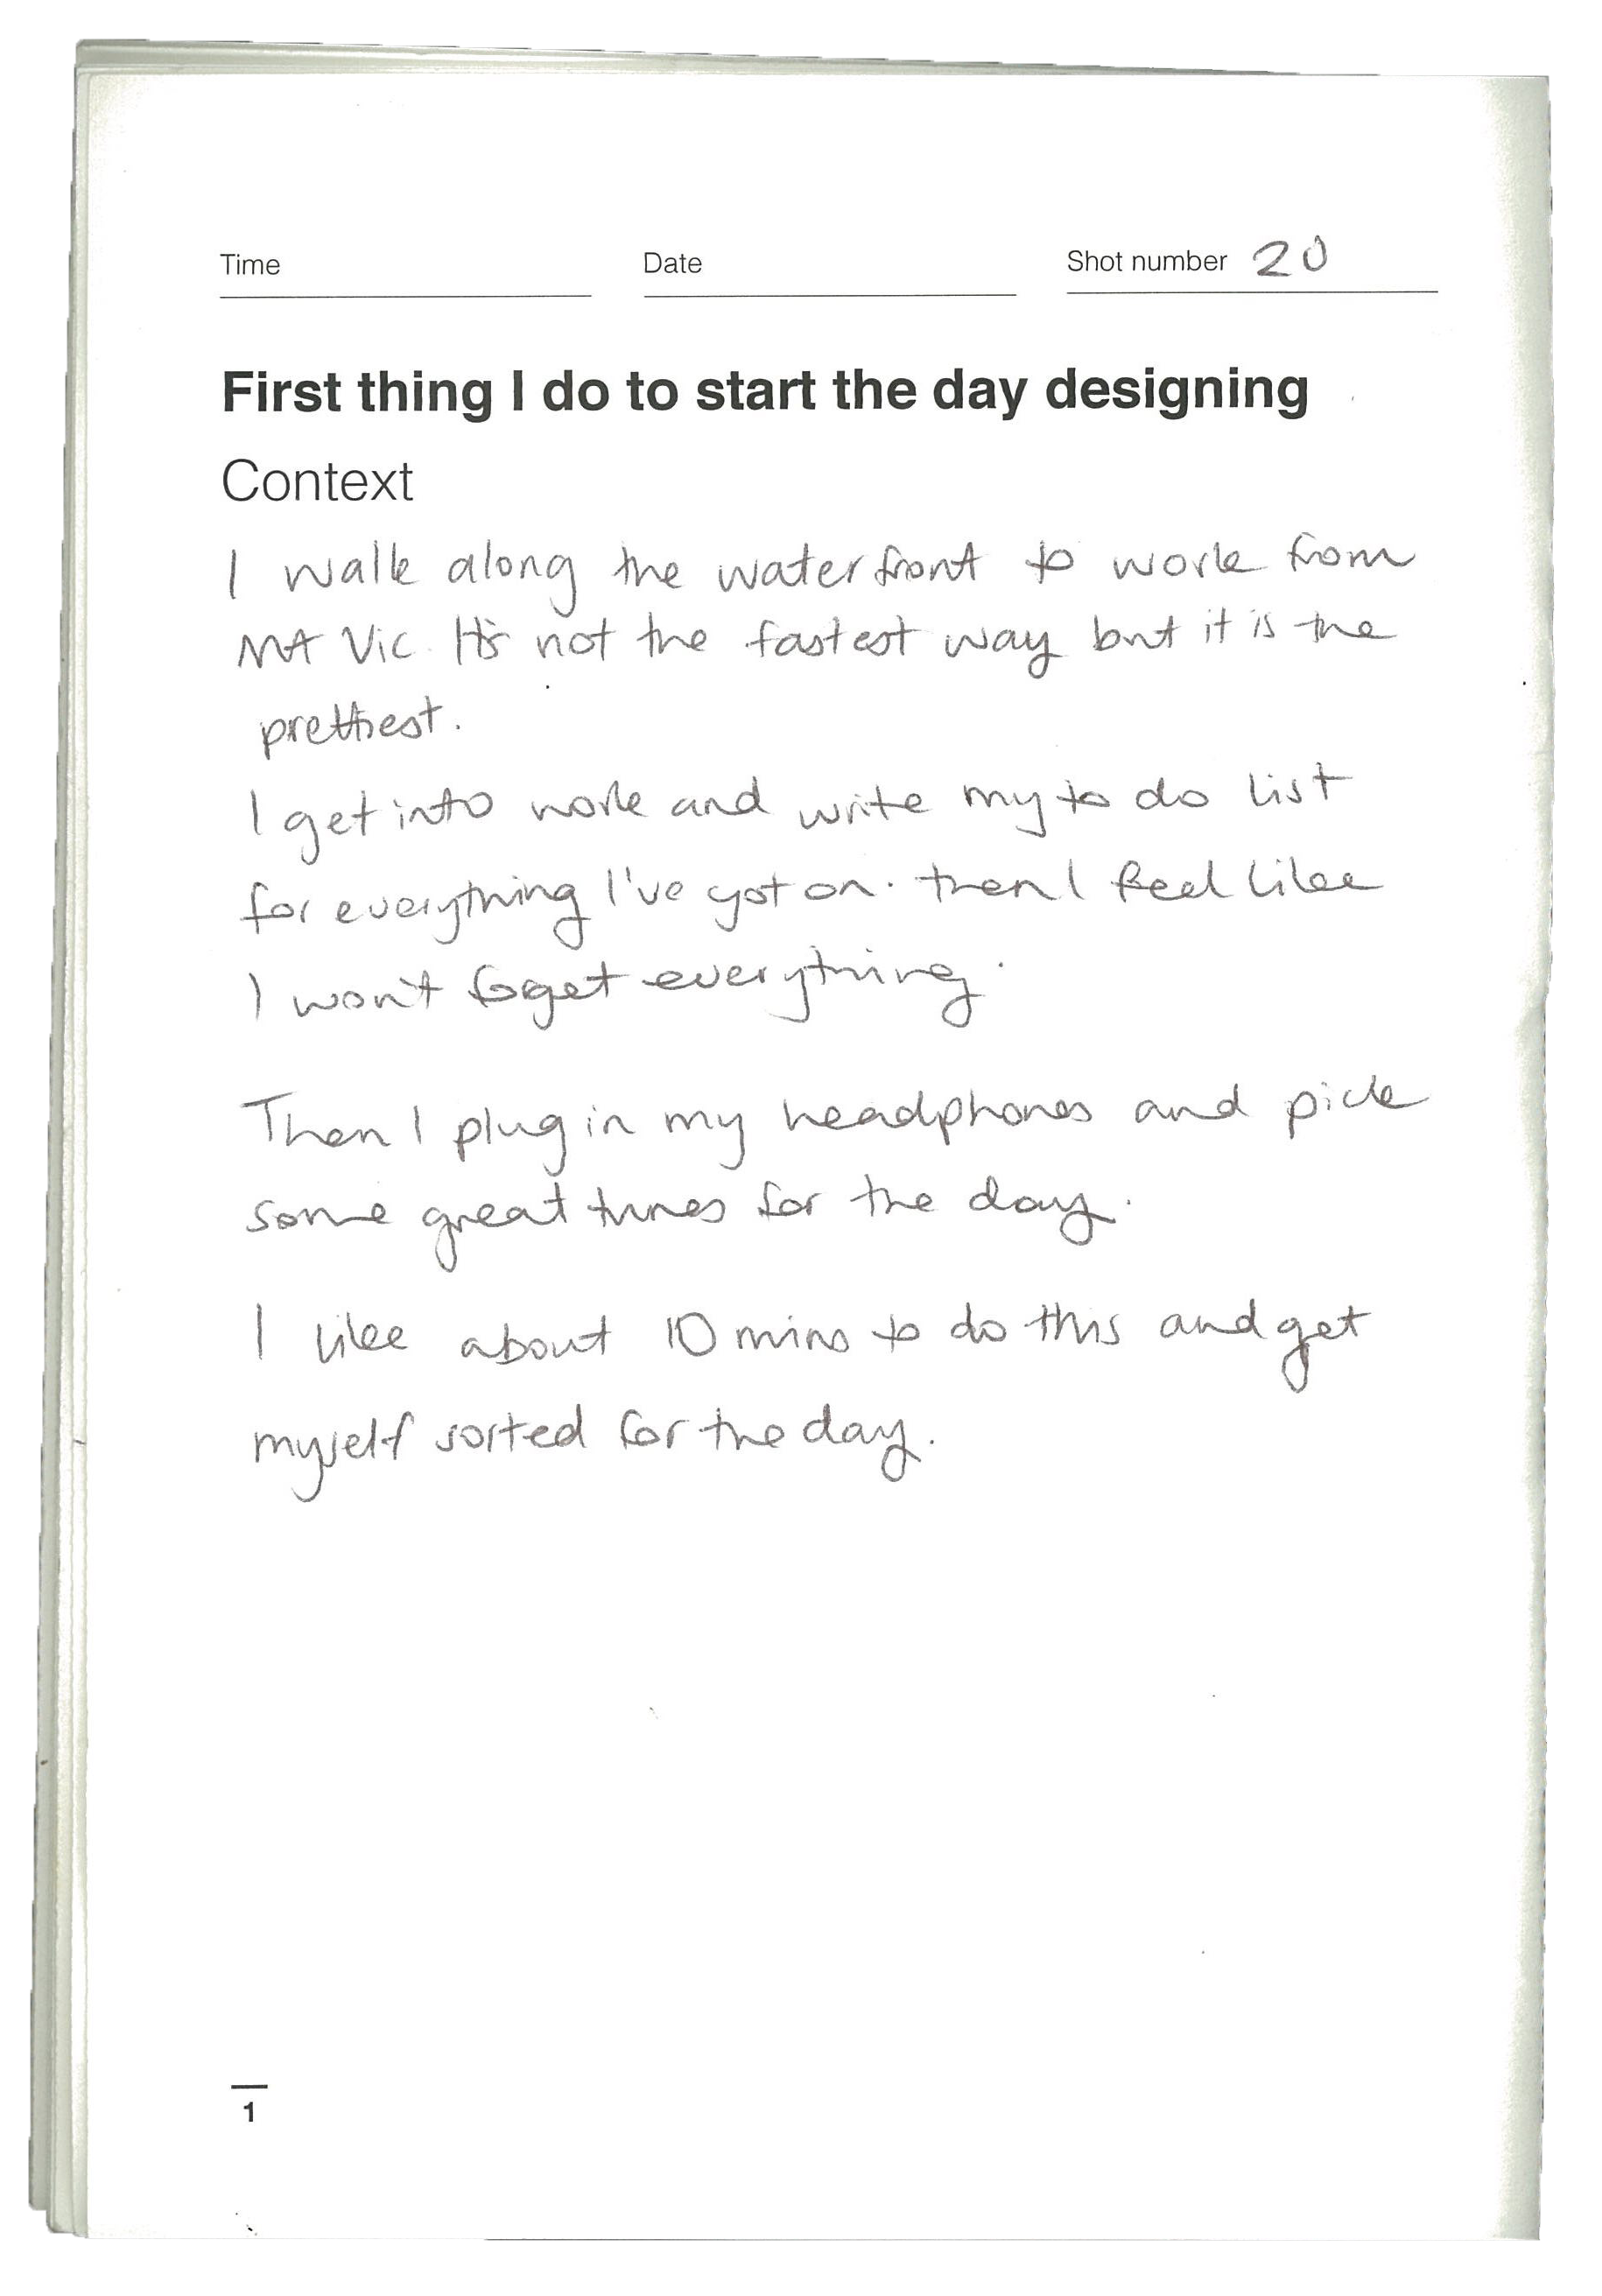 Time Date Shot number 20
First thing I do to start the day designing
Context
I walk along the waterfront to work from
Mt Vic. It's not the fastest way but it is the
prettiest.
I get into work and write my to do list
for everything I've got on. then I feel like
I won't foget everything.
Then I plug in my headphones and pick
some great tunes for the day.
I like about 10 mins to do this and get
myself sorted for the day.
1